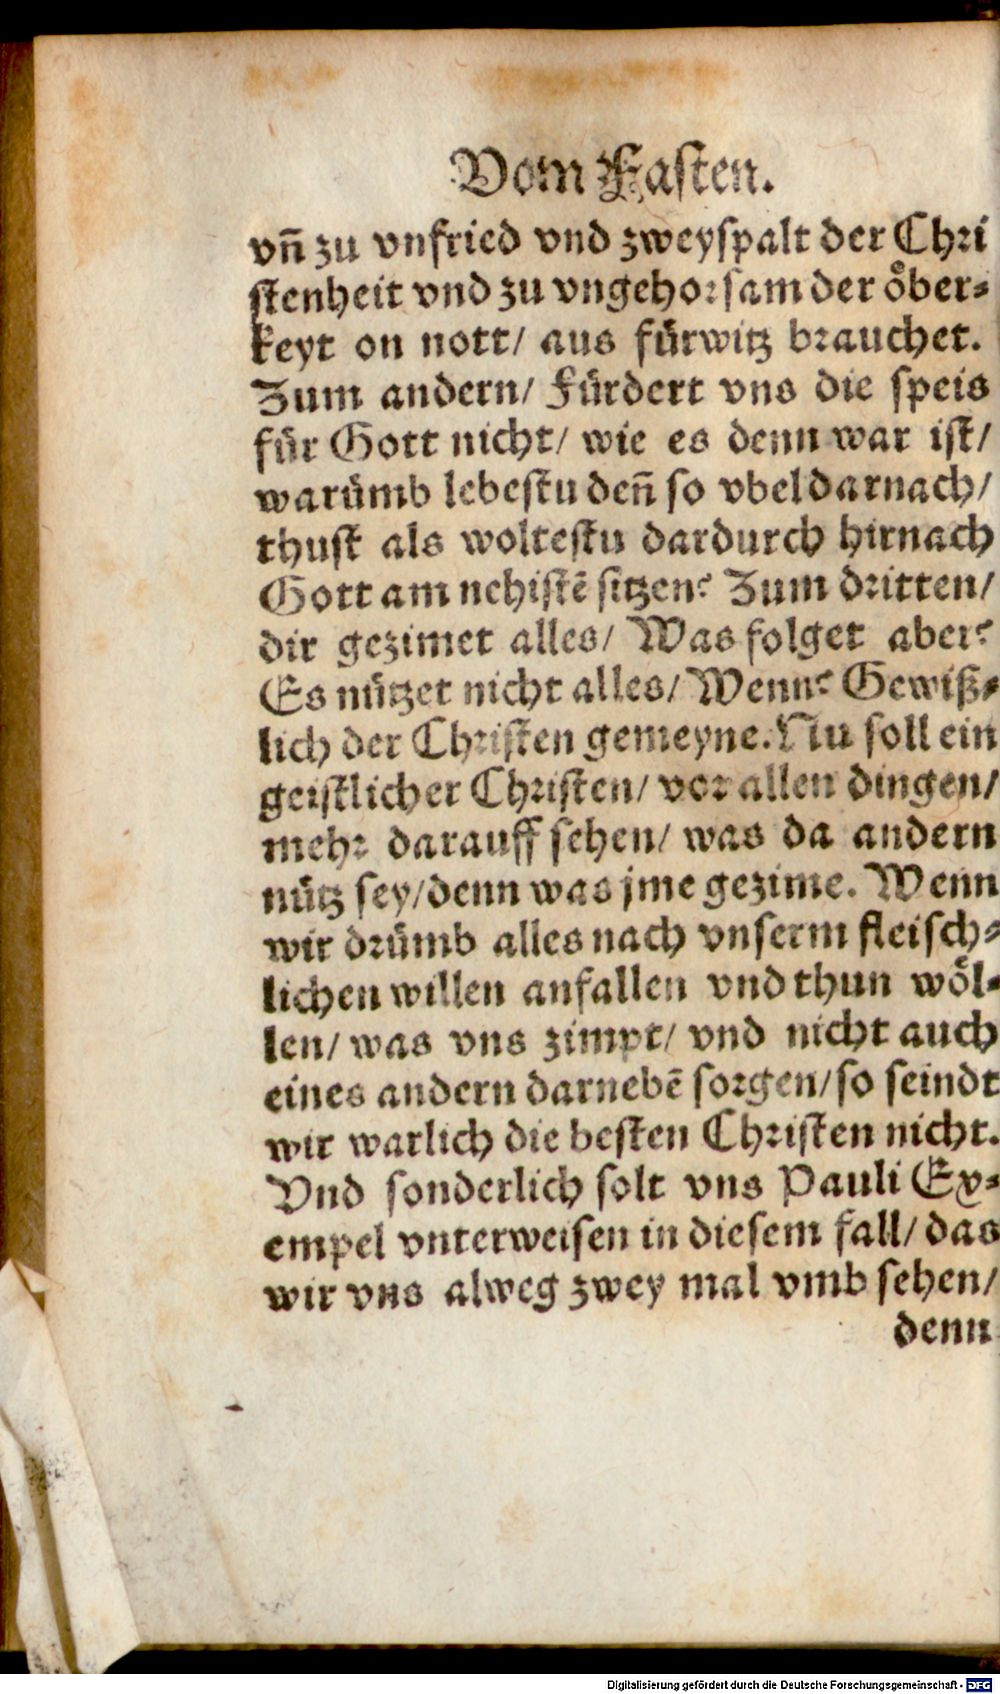 Vom Fasten.
vñ zu vnfried vnd zweyspalt der Chri
stenheit vnd zu vngehorsam der oͤber⸗
keyt on nott/ aus fürwitz brauchet.
Zum andern/ Fürdert vns die speis
für Gott nicht/ wie es denn war ist/
warümb lebestu deñ so vbel darnach/
thust als woltestu dardurch hirnach
Gott am nehistē sitzen? Zum dritten/
dir gezimet alles/ Was folget aber?
Es nützet nicht alles/ Wenn? Gewiß⸗
lich der Christen gemeyne. Nu soll ein
geistlicher Christen/ vor allen dingen/
mehr darauff sehen/ was da andern
nütz sey/ denn was jme gezime. Wenn
wir drümb alles nach vnserm fleisch⸗
lichen willen anfallen vnd thun woͤl⸗
len/ was vns zimpt/ vnd nicht auch
eines andern darnebē sorgen/ so seindt
wir warlich die besten Christen nicht.
Vnd sonderlich solt vns Pauli Ex⸗
empel vnterweisen in diesem fall/ das
wir vns alweg zwey mal vmb sehen/
denn
Digitalisierung gefördert durch die Deutsche Forschungsgemeinschaft - DFG